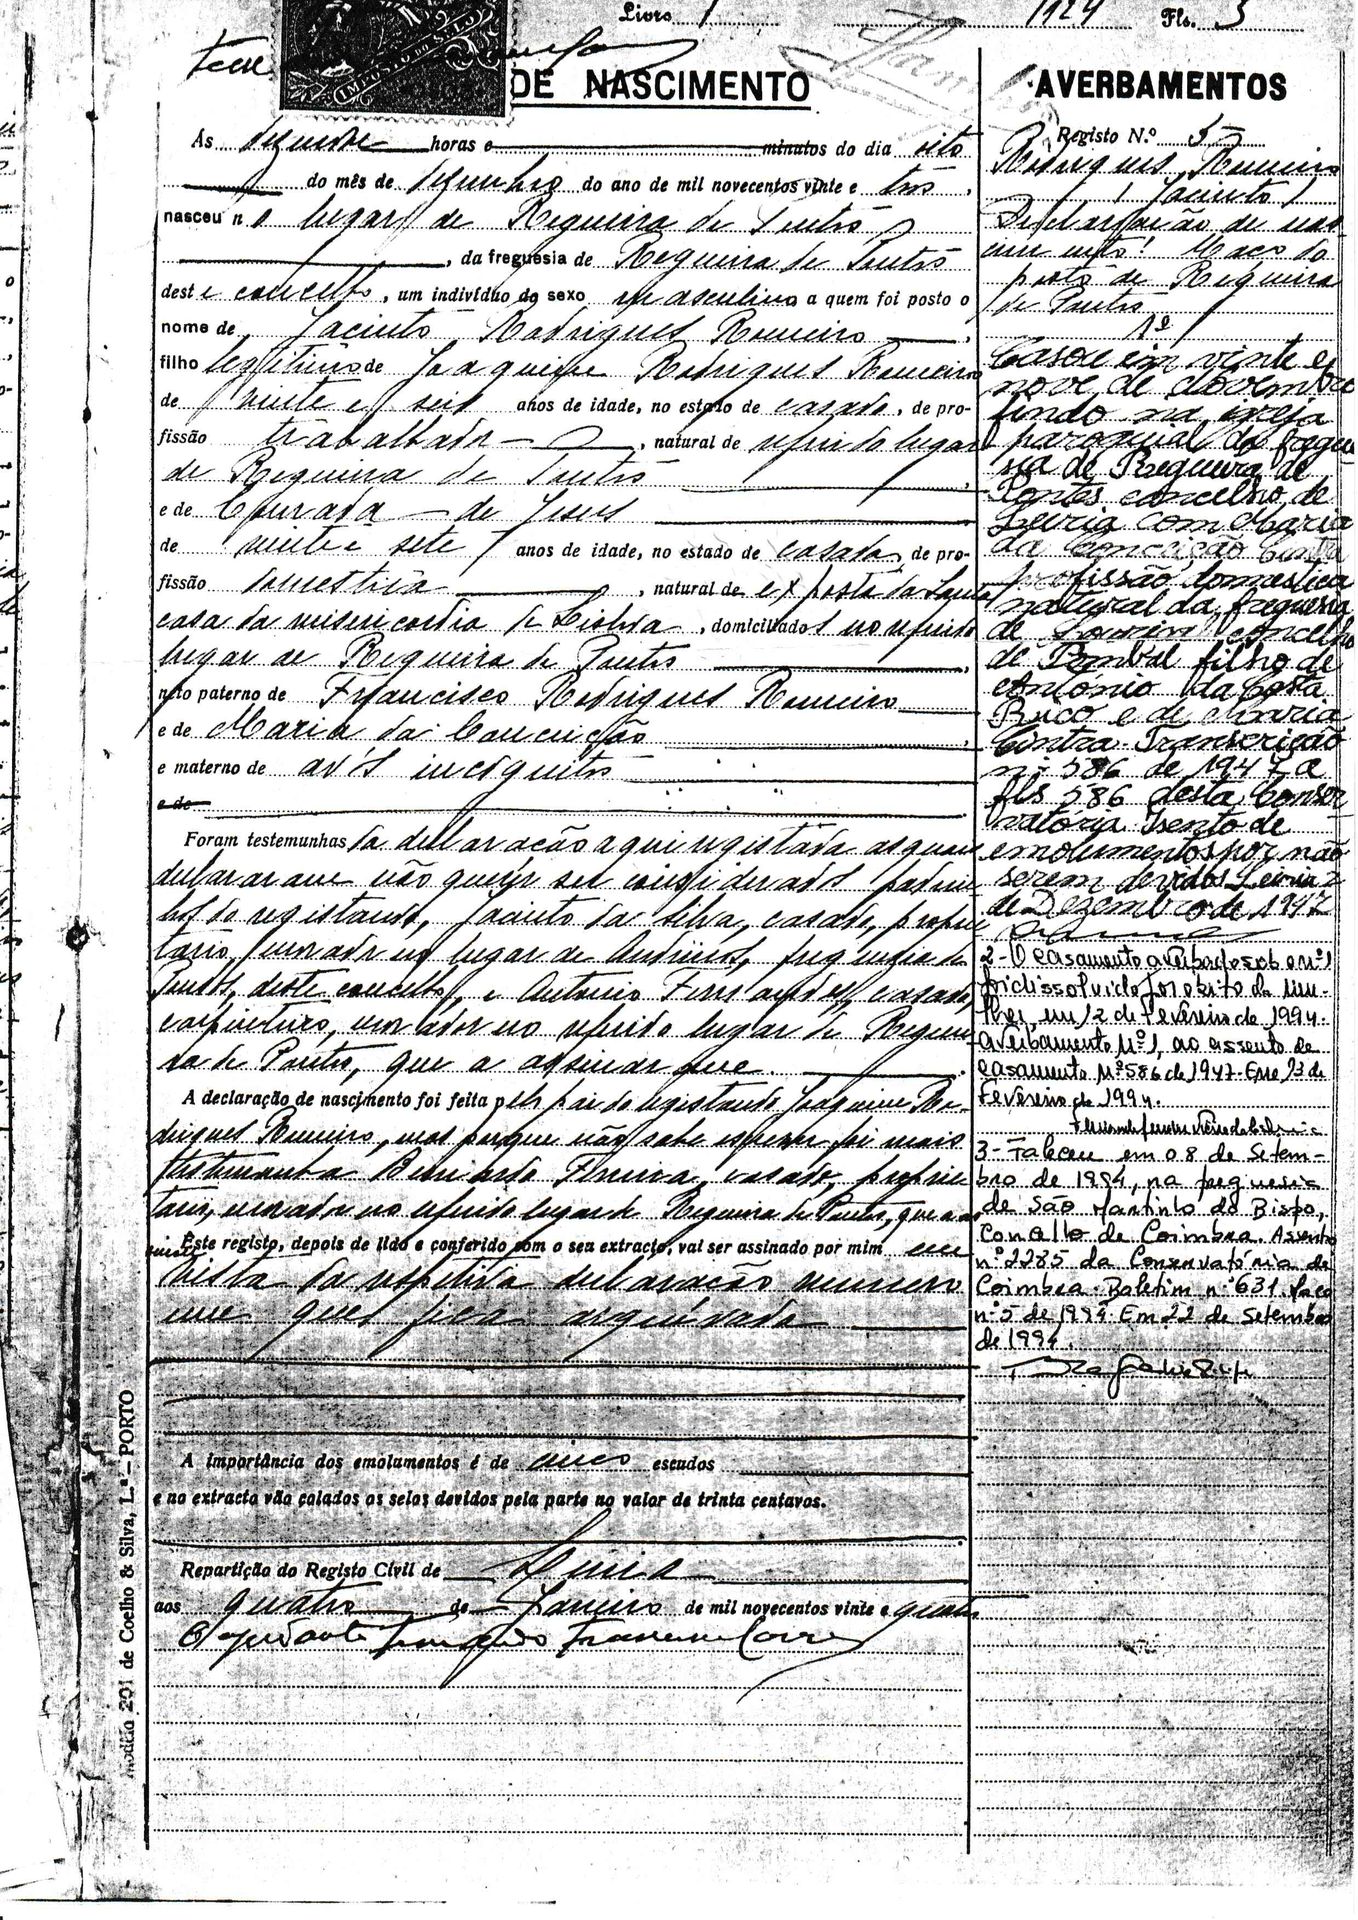 Livro 1 1924 Fls. 3
IMPOSTO DO SELO
DE NASCIMENTO
Às dezanove horas e minutos do dia oito
do mês de dezembro do ano de mil novecentos vinte e três,
nasceu no lugar de Regueira de Pontes
, da freguesia de Regueira de Pontes
deste concelho, um indivíduo do sexo masculino a quem foi posto o
nome de Jacinto Rodrigues Romeiro,
filho legitimo de Joaquim Rodrigues Romeiro
de vinte e seis anos de idade, no estado de casado, de pro-
fissão trabalhador, natural de referido lugar
de Regueira de Pontes,
e de Conrada de Jesus
de vinte e sete anos de idade, no estado de casada, de pro-
fissão domestica, natural de exposta da Santa
casa da misericordia de Lisboa, domiciliados no referido
lugar de Regueira de Pontes,
neto paterno de Francisco Rodrigues Romeiro
e de Maria da Conceição,
e materno de avós incognitos
e de
Foram testemunhas da declaração aqui registada as quais
declararam não querer ser considerados padri
nhos do registando, Jacinto da Silva, casado, proprie
tario, morador no lugar de freguesia de
Pontes, deste concelho, e Antonio Fernandes, casado,
carpinteiro, morador no referido lugar de Reguei
ra de Pontes, que a assinaram.
A declaração de nascimento foi feita pelo pai do registando Joaquim Ro-
drigues Romeiro, mas porque não sabe escrever foi mais
testemunha Bernardo Ferreira, casado, proprie
tario, morador no referido lugar de Regueira de Pontes, que a as
sinou
Este registo, depois de lido e conferido com o seu extracto, vai ser assinado por mim em
vista da repetida declaração numero
um que fica arquivada
A importância dos emolumentos é de cinco escudos
e no extracto vão colados os selos devidos pela parte no valor de trinta centavos.
Repartição do Registo Civil de Leiria
aos quatro de Janeiro de mil novecentos vinte e quatro
O ajudante
Modêlo 201 de Coelho & Silva, L.ª — PORTO
AVERBAMENTOS
Registo N.º 5
Rodrigues Romeiro
(Jacinto)
Declaração de nas
cimento! Maço do
posto de Regueira
de Pontes
1º
Casou em vinte e
nove de Novembro
findo na igreja
paroquial da fregue
sia de Regueira de
Pontes concelho de
Leiria com Maria
da Conceição Cintra
profissão domestica
natural da freguesia
de Louriçal concelho
de Pombal filho de
António da Costa
Rico e de Maria
Cintra. Transcrição
nº 586 de 1947 a
fls 586 desta Conser
vatória Isento de
emolumentos por não
serem devidos Leiria 2
de Dezembro de 1947
2- O casamento averbado sob o nº1
foi dissolvido por obito da mu-
lher, em 12 de Fevereiro de 1994.
Averbamento Nº1, ao assento de
casamento Nº586 de 1947. Em 23 de
Fevereiro de 1994.
3- Faleceu em 08 de Setem-
bro de 1994, na freguesia
de São Martinho do Bispo,
Concelho de Coimbra. Assento
nº 2285 da Conservatória de
Coimbra. Boletim nº 631. Maço
nº 5 de 1994. Em 22 de Setembro
de 1994.